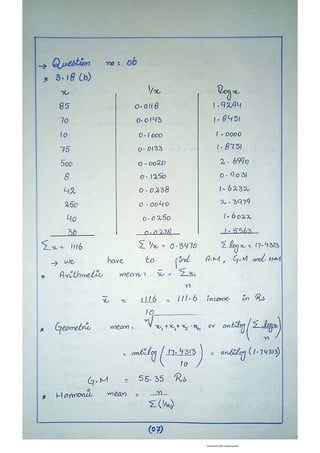 → Question no: 06
* 3.18 (b)
x 1/x logx
85 0.0118 1.9294
70 0.0143 1.8451
10 0.1000 1.0000
75 0.0133 1.8751
500 0.0020 2.6990
8 0.1250 0.9031
42 0.0238 1.6232
250 0.0040 2.3979
40 0.0250 1.6022
36 0.0278 1.5563
Σx = 1116 Σ 1/x = 0.3470 Σ logx = 17.4313
→ we have to find A.M, G.M and HM
* Arithmetic mean: x̄ = Σx
n
x̄ = 1116 = 111.6 income in Rs
10
* Geometric mean: ⁿ√x₁+x₂+x₃...xₙ or antilog (Σ logx)
n
= antilog (17.4313) = antilog (1.74313)
10
G.M = 55.35 Rs
* Harmonic mean = n
Σ(1/x)
(07)